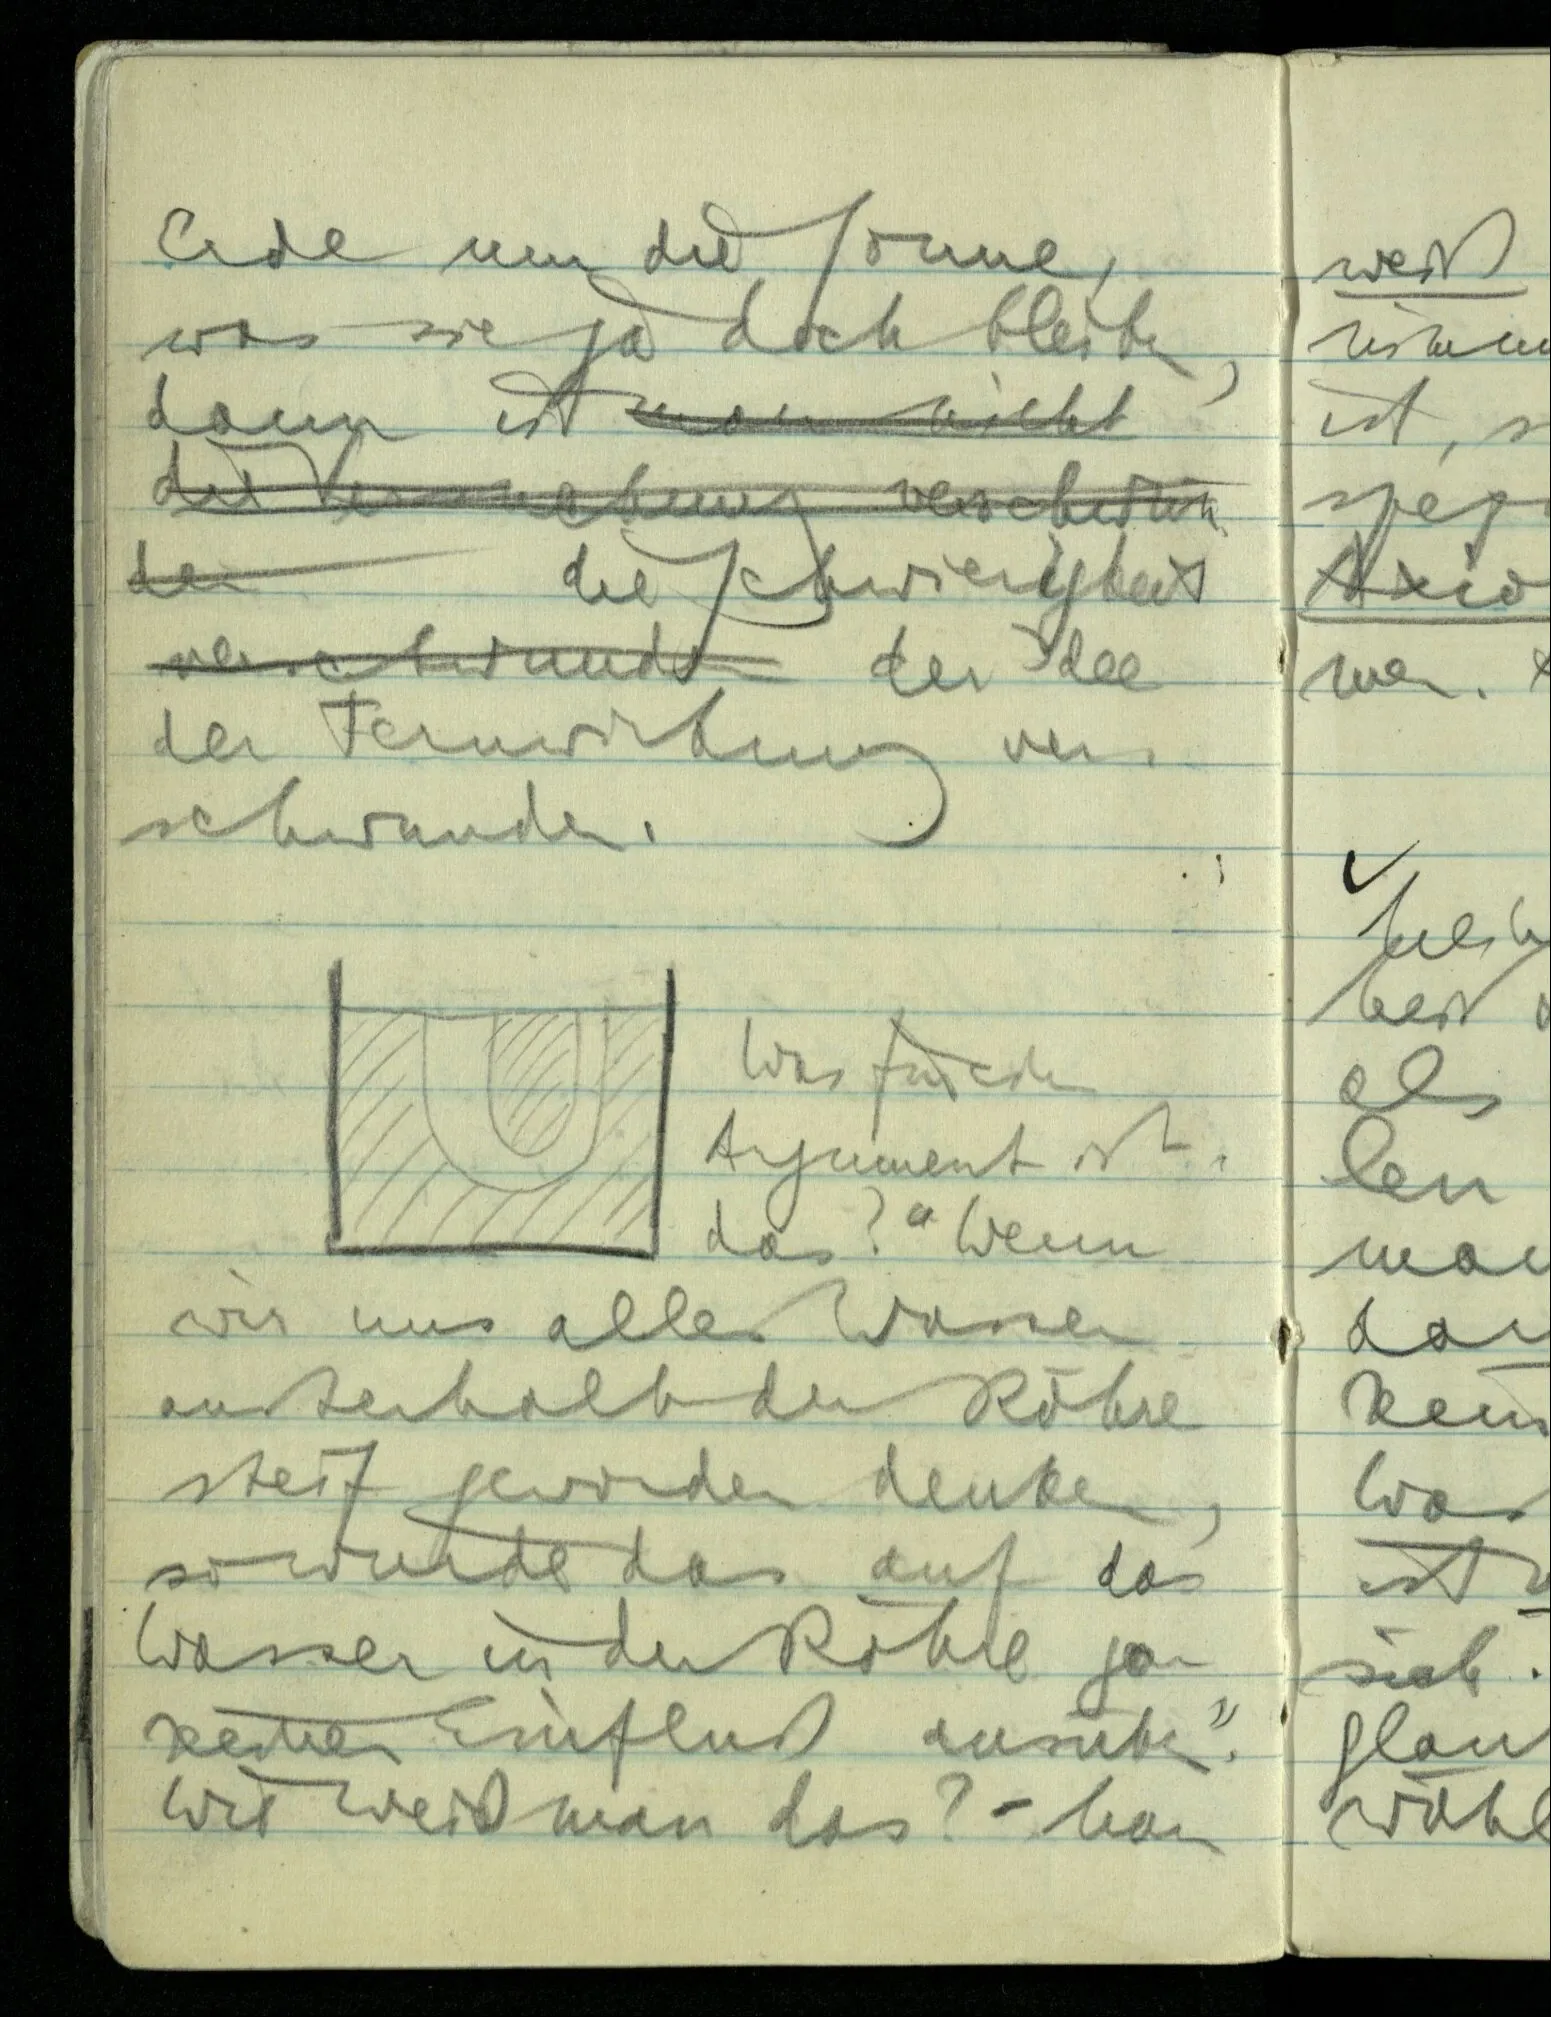 Erde um die Sonne,
was sie ja doch bleiben,
dann ist man nicht
die Versuchung verschwun
den die Schwierigkeit
verschwunden der Idee
der Fernwirkung ver-
schwunden.
Was für ein
Argument ist
das? "Wenn
wir uns alles Wasser
außerhalb der Röhre
steif geworden denken,
so würde das auf das
Wasser in der Röhre gar
keinen Einfluß ausüben".
Wie weiß man das? – kan
weiß
ist, s
Axio
als
len
man
Was
ist
sich.